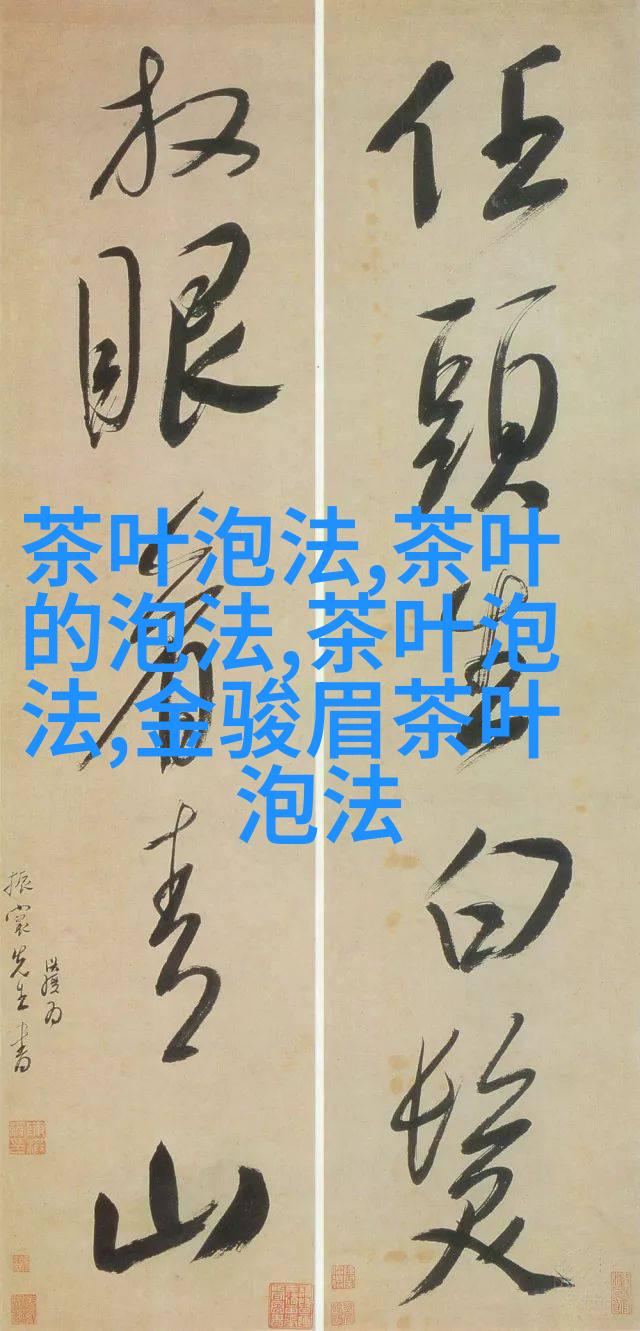 任頭生白髮
放眼看青山
振裳先生書
茶叶泡法,茶叶
的泡法,茶叶泡
法,金骏眉茶叶
泡法